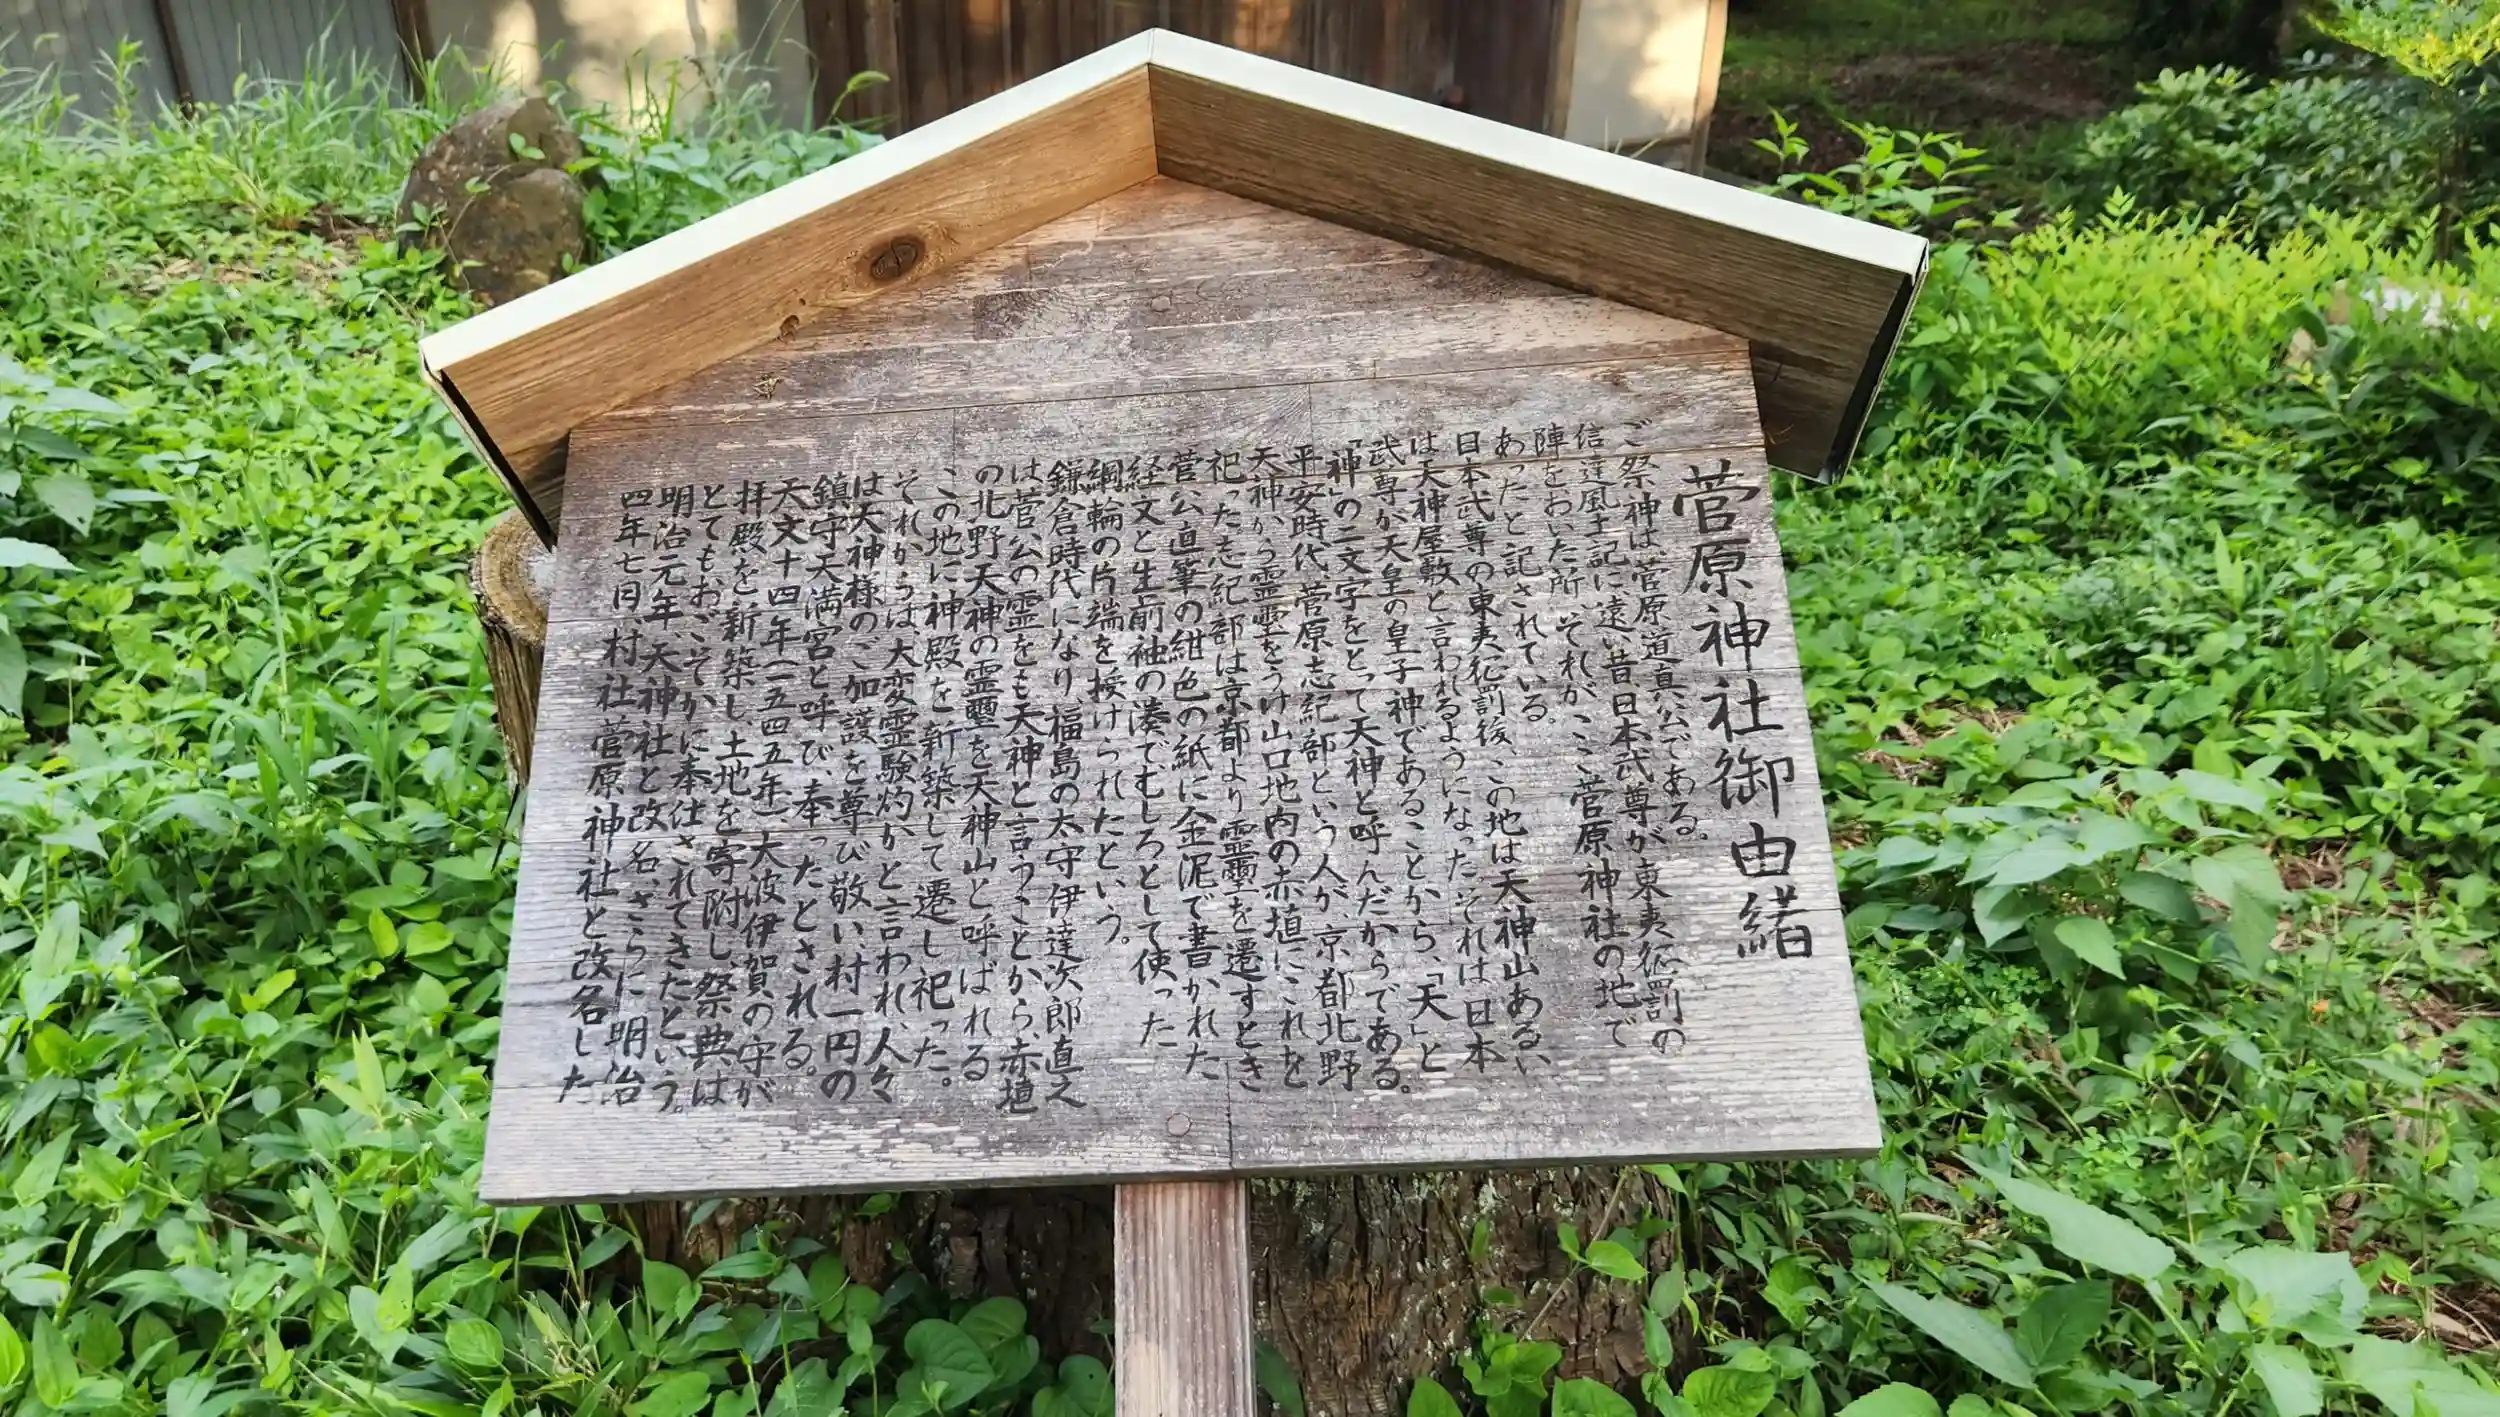 菅原神社御由緒
ご祭神は、菅原道真公である。
信達風土記に、遠い昔日本武尊が東夷征罰の
陣をおいた所、それが、ここ菅原神社の地で
あったと記されている。
日本武尊の東夷征罰後、この地は天神山あるい、
は天神屋敷と言われるようになった。それは日本
武尊が天皇の皇子神であることから、「天」と
「神」の二文字をとって天神と呼んだからである。
平安時代、菅原志紀部という人が、京都北野
天神から霊璽をうけ山口地内の赤埴にこれを
祀った志紀部は京都より霊璽を遷すとき
菅公直筆の紺色の紙に金泥で書かれた
経文と生前袖の湊でむしろとして使った
綱輪の片端を授けられたという。
鎌倉時代になり、福島の太守伊達次郎直之
は菅公の霊をも天神と言うことから、赤埴
の北野天神の霊璽を天神山と呼ばれる
この地に神殿を新築して遷し祀った。
それからは、大変霊験灼かと言われ、人々
は天神様のご加護を尊び敬い、村一円の
鎮守天満宮と呼び、奉ったとされる。
天文十四年(一五四五年)大波伊賀の守が
拝殿を新築し、土地を寄附し、祭典は
とてもおごそかに奉仕されてきたという。
明治元年、天神社と改名、さらに明治
四年七月、村社菅原神社と改名した